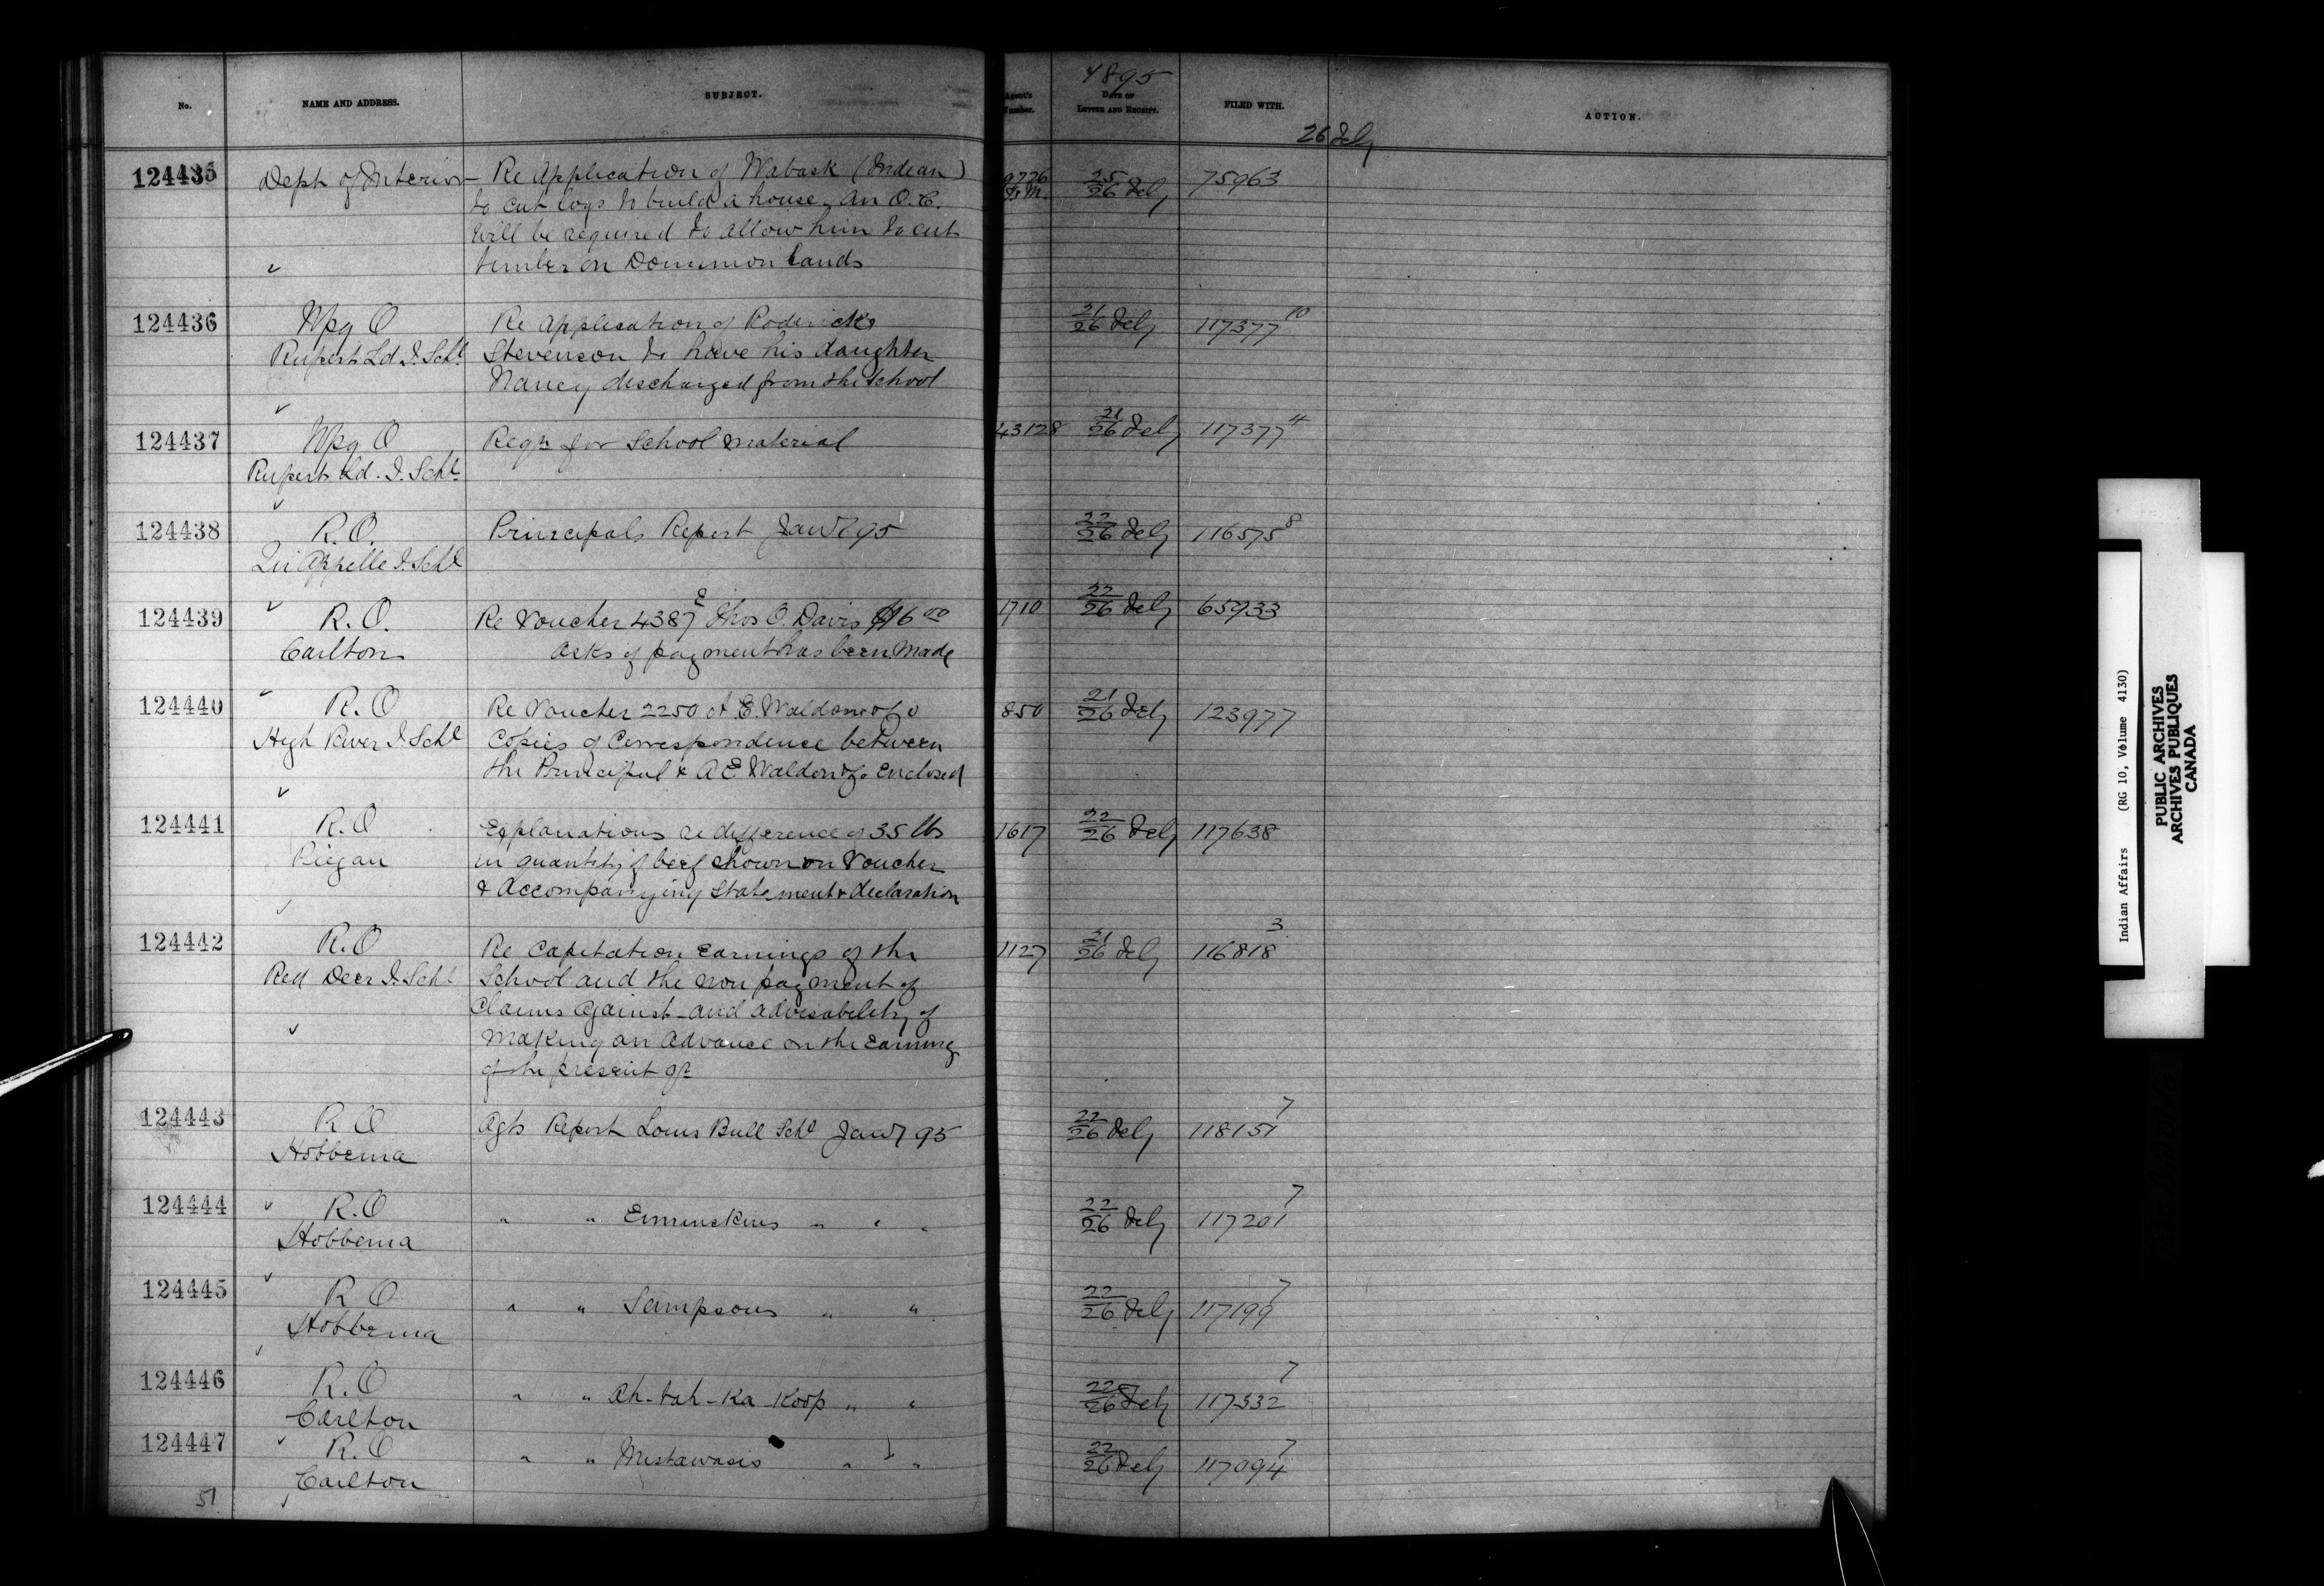 No.
NAME AND ADDRESS.
SUBJECT.
Agent's Number.
1895
DATE OF LETTER AND RECEIPT.
FILED WITH.
ACTION.
26 Feby
124435 Dept of Interior Re Application of Wabask (Indian) 9776 25/26 Feby 75963
to cut logs to build a house, An O.C.
will be required to allow him to cut
timber on Dominion Lands
124436 Wpg O Re Application of Roderick 21/26 Feby 117377 10
Rupert Ld I. Schl Stevenson to have his daughter
Nancy discharged from the School
124437 Wpg O Reqn for School Material 43128 21/26 Feby 117377 4
Rupert Ld. I. Schl
124438 R.O. Principals Report Jany 95 22/26 Feby 116575 8
Qu'Appelle I. Schl
124439 R.O. Re Voucher 4387 E Thos O. Davis $16 00 1710 22/26 Feby 65933
Carlton Asks if payment has been made
124440 R.O Re Voucher 2250 A.E. Waldon & Co 850 21/26 Feby 123977
High River I. Schl Copies of Correspondence between
the Principal & A E Waldon & Co Enclosed
124441 R.O Explanations re difference of 35 lbs 1617 22/26 Feby 117638
Piegan in quantity of beef shown on Voucher
& Accompanying Statement & declaration
124442 R.O Re Capitation Earnings of the 1127 21/26 Feby 116818 3
Red Deer I. Schl School and the non payment of
Claims against and advisability of
Making an Advance on the Earnings
of the present qr
124443 R O Agts Report Louis Bull Schl Jany 95 22/26 Feby 118151 7
Hobbema
124444 R.O " " Ermineskins " " " 22/26 Feby 117201 7
Hobbema
124445 R O " " Sampsons " " 22/26 Feby 117199 7
Hobbema
124446 R.O " " Ah-tah-Ka-Koop " " 22/26 Feby 117532 7
Carlton
124447 R.O " " Mistawasis " " 22/26 Feby 117094 7
Carlton
51
Indian Affairs (RG 10, Volume 4130)
PUBLIC ARCHIVES
ARCHIVES PUBLIQUES
CANADA